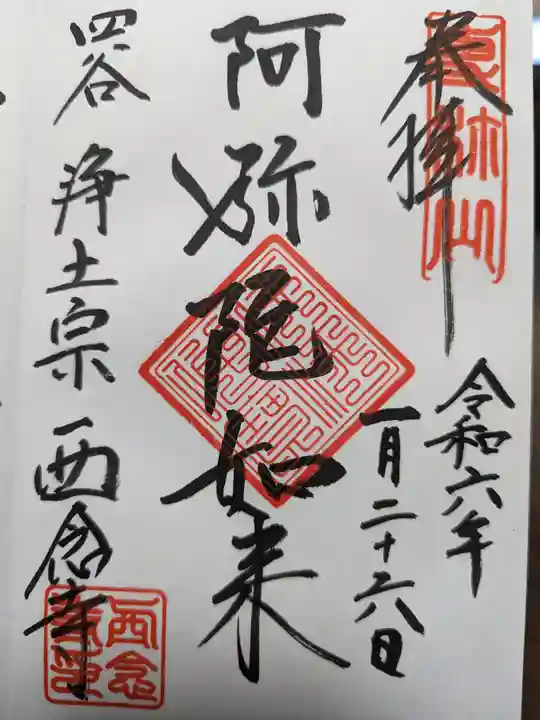 奉拝
令和六年
一月二十六日
阿弥陀如来
四谷 浄土宗 西念寺
西念